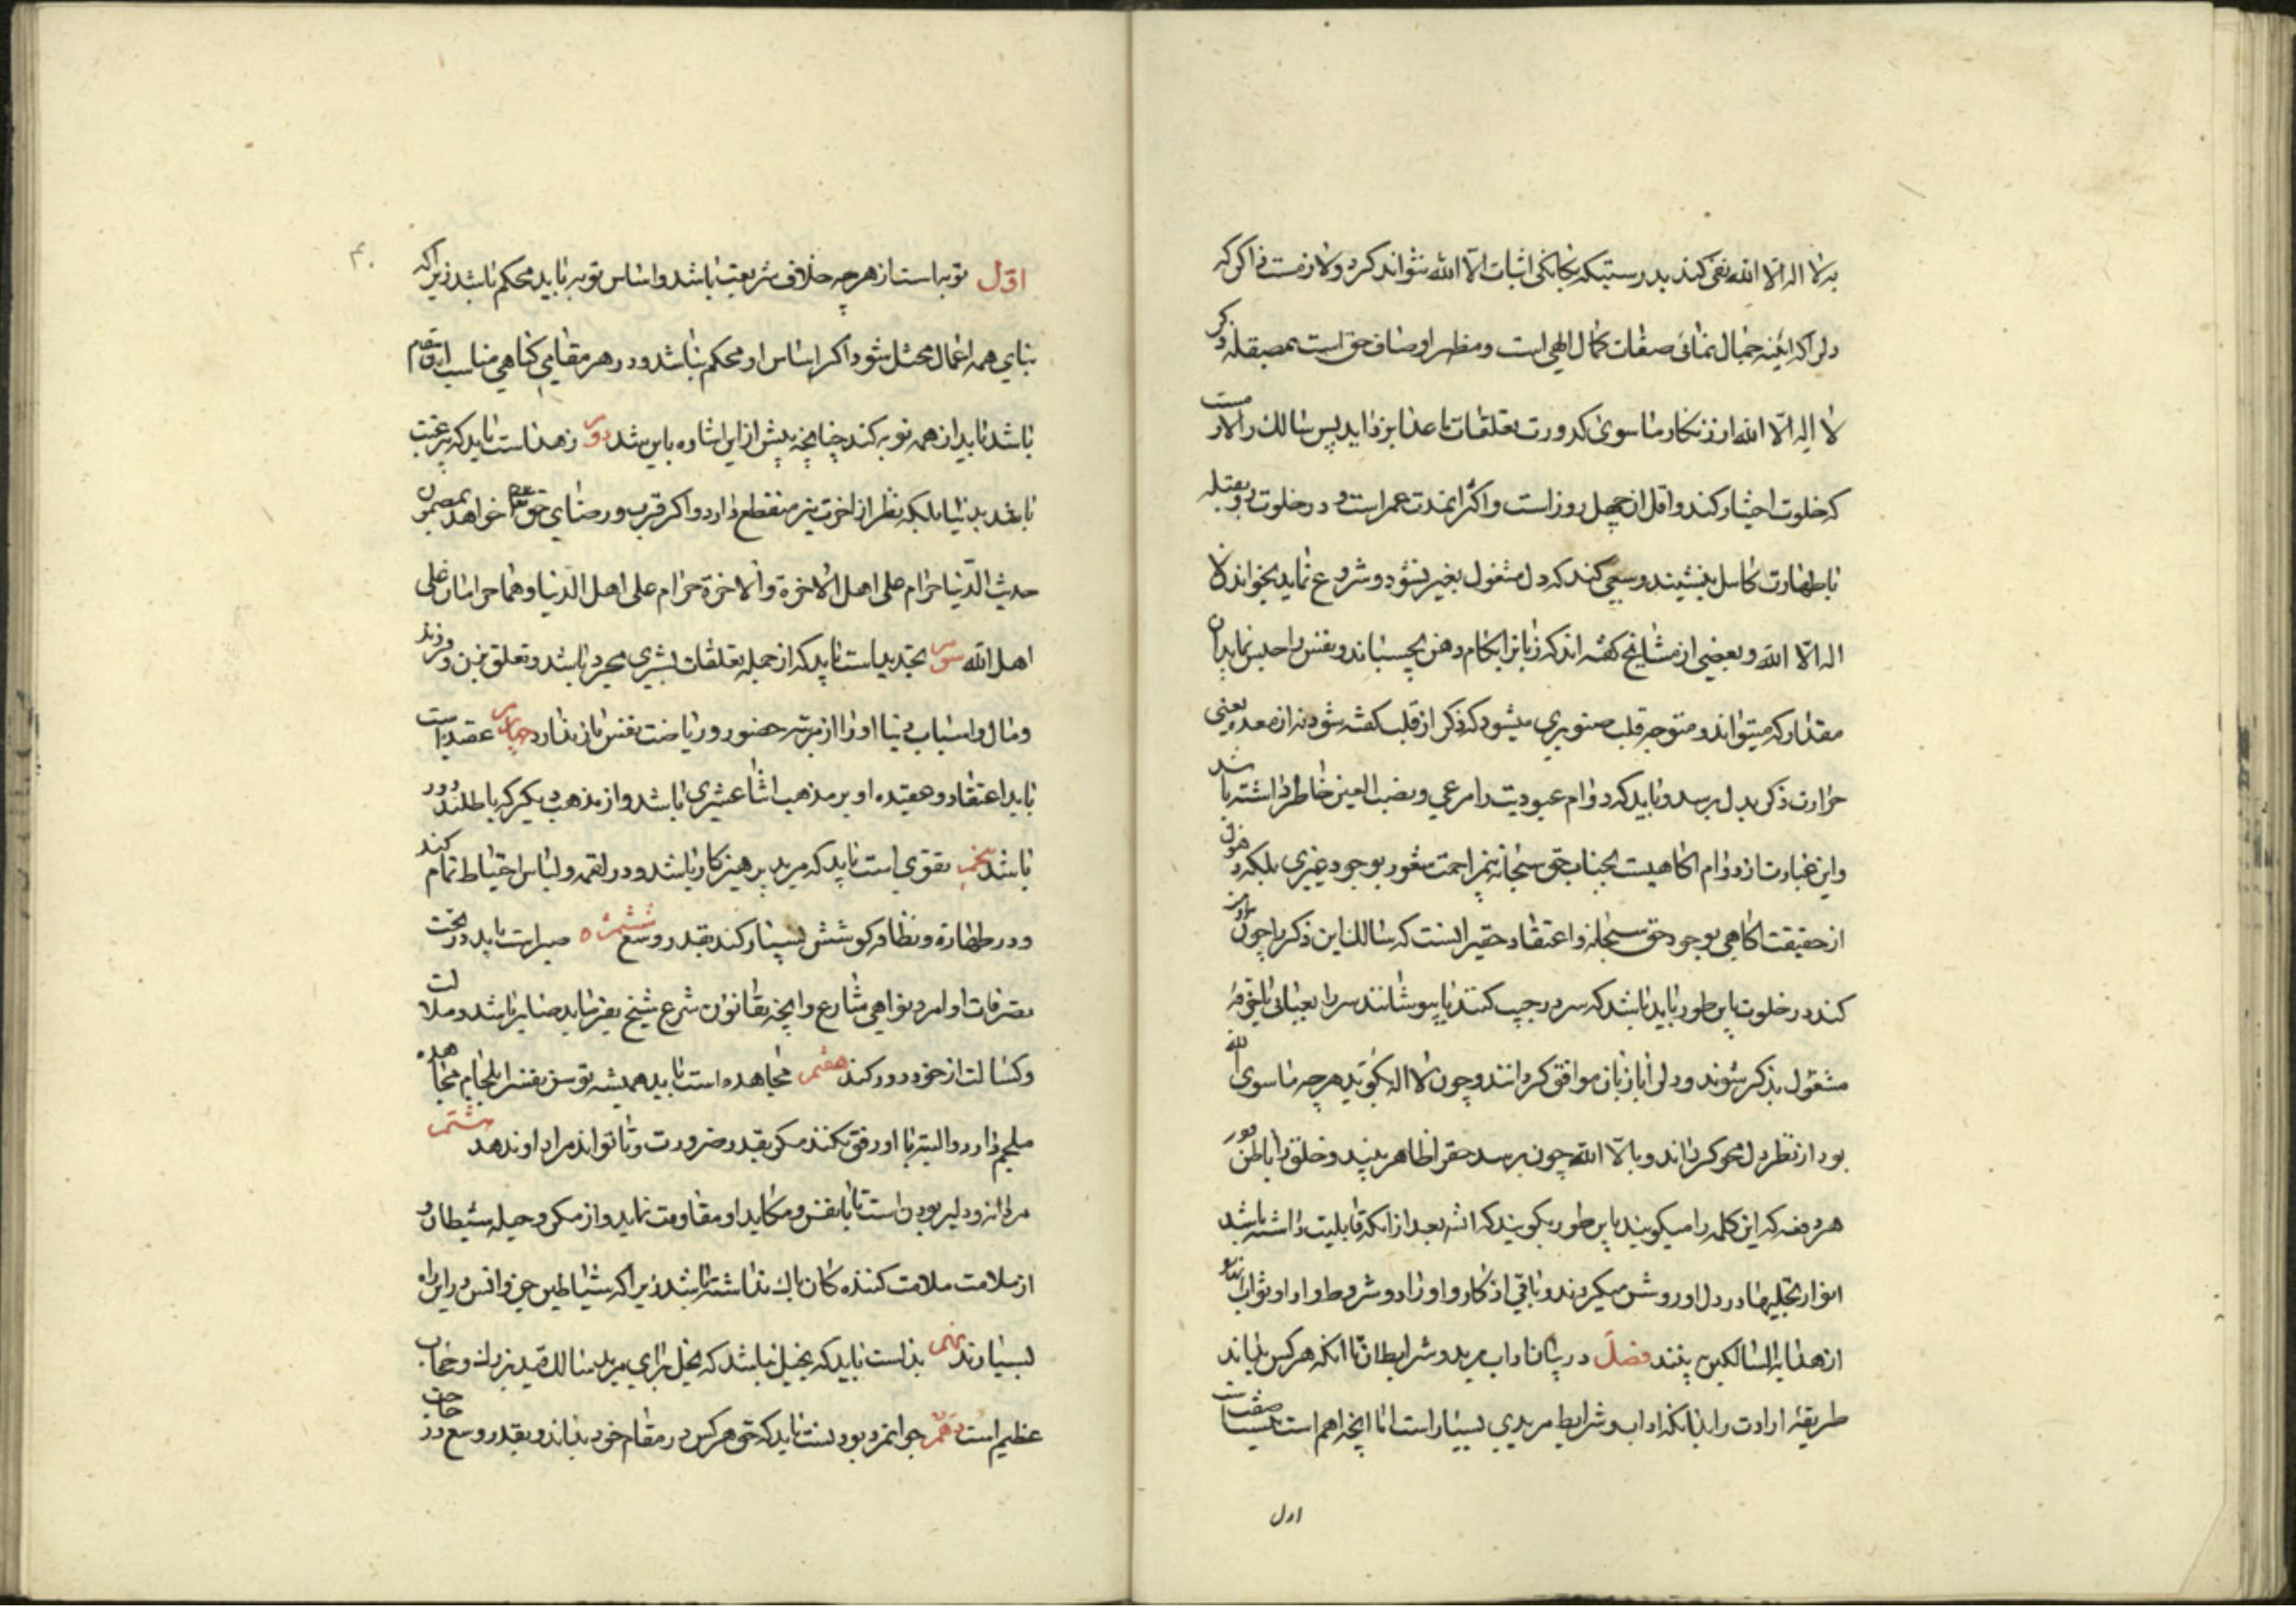 به لا اله الا الله نفی کند بدرستیکه بجانکی اثبات الا الله نتواند کرد ولازمست ذاکر که
دلرا که ائینه جمال نمائی صفات کمال الهی است ومظهر اوصاف حق است بمصیقله ذکر
لا اله الا الله از زنکار ماسوی کدورت تعلقات ما عدا بزداید پس سالک را لازمست
که خلوت اختیار کند واقل ان چهل روز است واکثر انمدت عمر است و در خلوت رو بقبله
باطهارت کامل بنشیند وسعی کند که دل مشغول بغیر نشود وشروع نماید بخواند لا
اله الا الله وبعضی از مشایخ کفته اند که زبانرا بکام دهن بچسباند ونفس را حبس نماید ان
مقدار که میتواند ومتوجه قلب صنوبری میشود که ذکر از قلب کفته شود نه از معده یعنی
حرارت ذکر بدل برسد وباید که دوام عبودیت را مرعی ونصب العین خاطر داشته باشد
واین عبارت از دوام اکاهیست بجناب حق سبحانه بیمزاحمت شعور بوجود غیری بلکه ذهول
از حقیقت اکاهی بوجود حق سبحانه واعتقاد حقیر اینست که سالک این ذکر را چون
کند در خلوت باین طور باید باشد که سر در جیب کنند یا بپوشانند سر را بعبائی یا
مشغول بذکر شوند ودلرا بازبان موافق کردانند وچون لا اله بکوید هر چه ماسوی الله
بود از نظر دل محو کرداند وبالا الله چون برسد حقرا ظاهر بیند وخلق را باطن ودر
هر دفعه که این کلمه را میکویند باین طور بکویند که انشه بعد از انکه قابلیت داشته باشد
انوار تجلیها در دل او روشن میکردند وباقی اذکار واوراد وشروط واداب
از هدایة السالکین بینند فصل در بیان اداب مرید وشرایط ان تا انکه هر کس بداند
طریقه ارادت را بدانکه اداب وشرایط مریدی بسیار است اما انچه اهم است بیست صفت است
اول
۴۰
اول توبه است از هر چه خلاف شریعت باشد واساس توبه باید محکم باشد زیرا که
بنای همه اعمال مختل شود اکر اساس او محکم نباشد ودر هر مقامی کناهی مناسب ان مقام
باشد باید از همه توبه کند چنانچه پیش از این اشاره باین شد دویم زهد است باید که بیرغبت
باشد بدنیا بلکه نظر از اخرت نیز منقطع دارد واکر قرب ورضای حق خواهد بمضمون
حدیث الدنیا حرام علی اهل الاخرة والاخرة حرام علی اهل الدنیا وهما حرامان علی
اهل الله سیم تجرید است باید که از جمله تعلقات بشری مجرد باشد وتعلق زن وفرزند
ومال واسباب دنیا او را از مرتبه حضور وریاضت نفس باز ندارد چهارم عقیده است
باید اعتقاد وعقیده او بر مذهب اثنا عشری باشد واز مذهب دیکر که باطلند دور
باشد پنجم تقوی است باید که مرید پرهیزکار باشد ودر لقمه ولباس احتیاط تمام کند
ودر طهارة ونظافة کوشش بسیار کند بقدر وسع ششم صبر است باید در تحت
تصرفات اوامر ونواهی شارع وانچه بقانون شرع شیخ بفرماید صابر باشد وملالت
وکسالت از خود دور کند هفتم مجاهده است باید همیشه توسن نفسرا بلجام مجاهده
ملجم دارد والبته با او رفق نکند مکر بقدر ضرورت وتا تواند مراد او ندهد هشتم
مردانه ودلیر بودن است تا با نفس ومکاید او مقاومت نماید واز مکر وحیله شیطان و
از ملامت ملامت کننده کان باک نداشته باشد زیرا که شیاطین جن وانس در این راه
بسیارند نهم بذل است باید که بخیل نباشد که بخل برای مرید سالک قید بزرک وحجاب
عظیم است دهم جوانمرد بودنست باید که حق هر کس در مقام خود بداند وبقدر وسع در